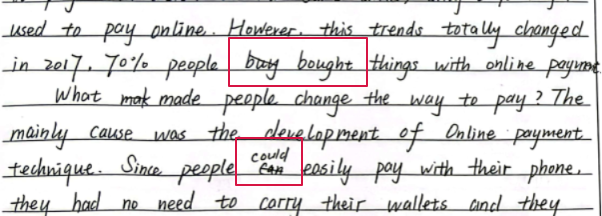 used to pay online. However, this trends totally changed
in 2017. 70% people buy bought things with online payment.
What mak made people change the way to pay? The
mainly cause was the development of Online payment
technique. Since people can could easily pay with their phone,
they had no need to carry their wallets and they